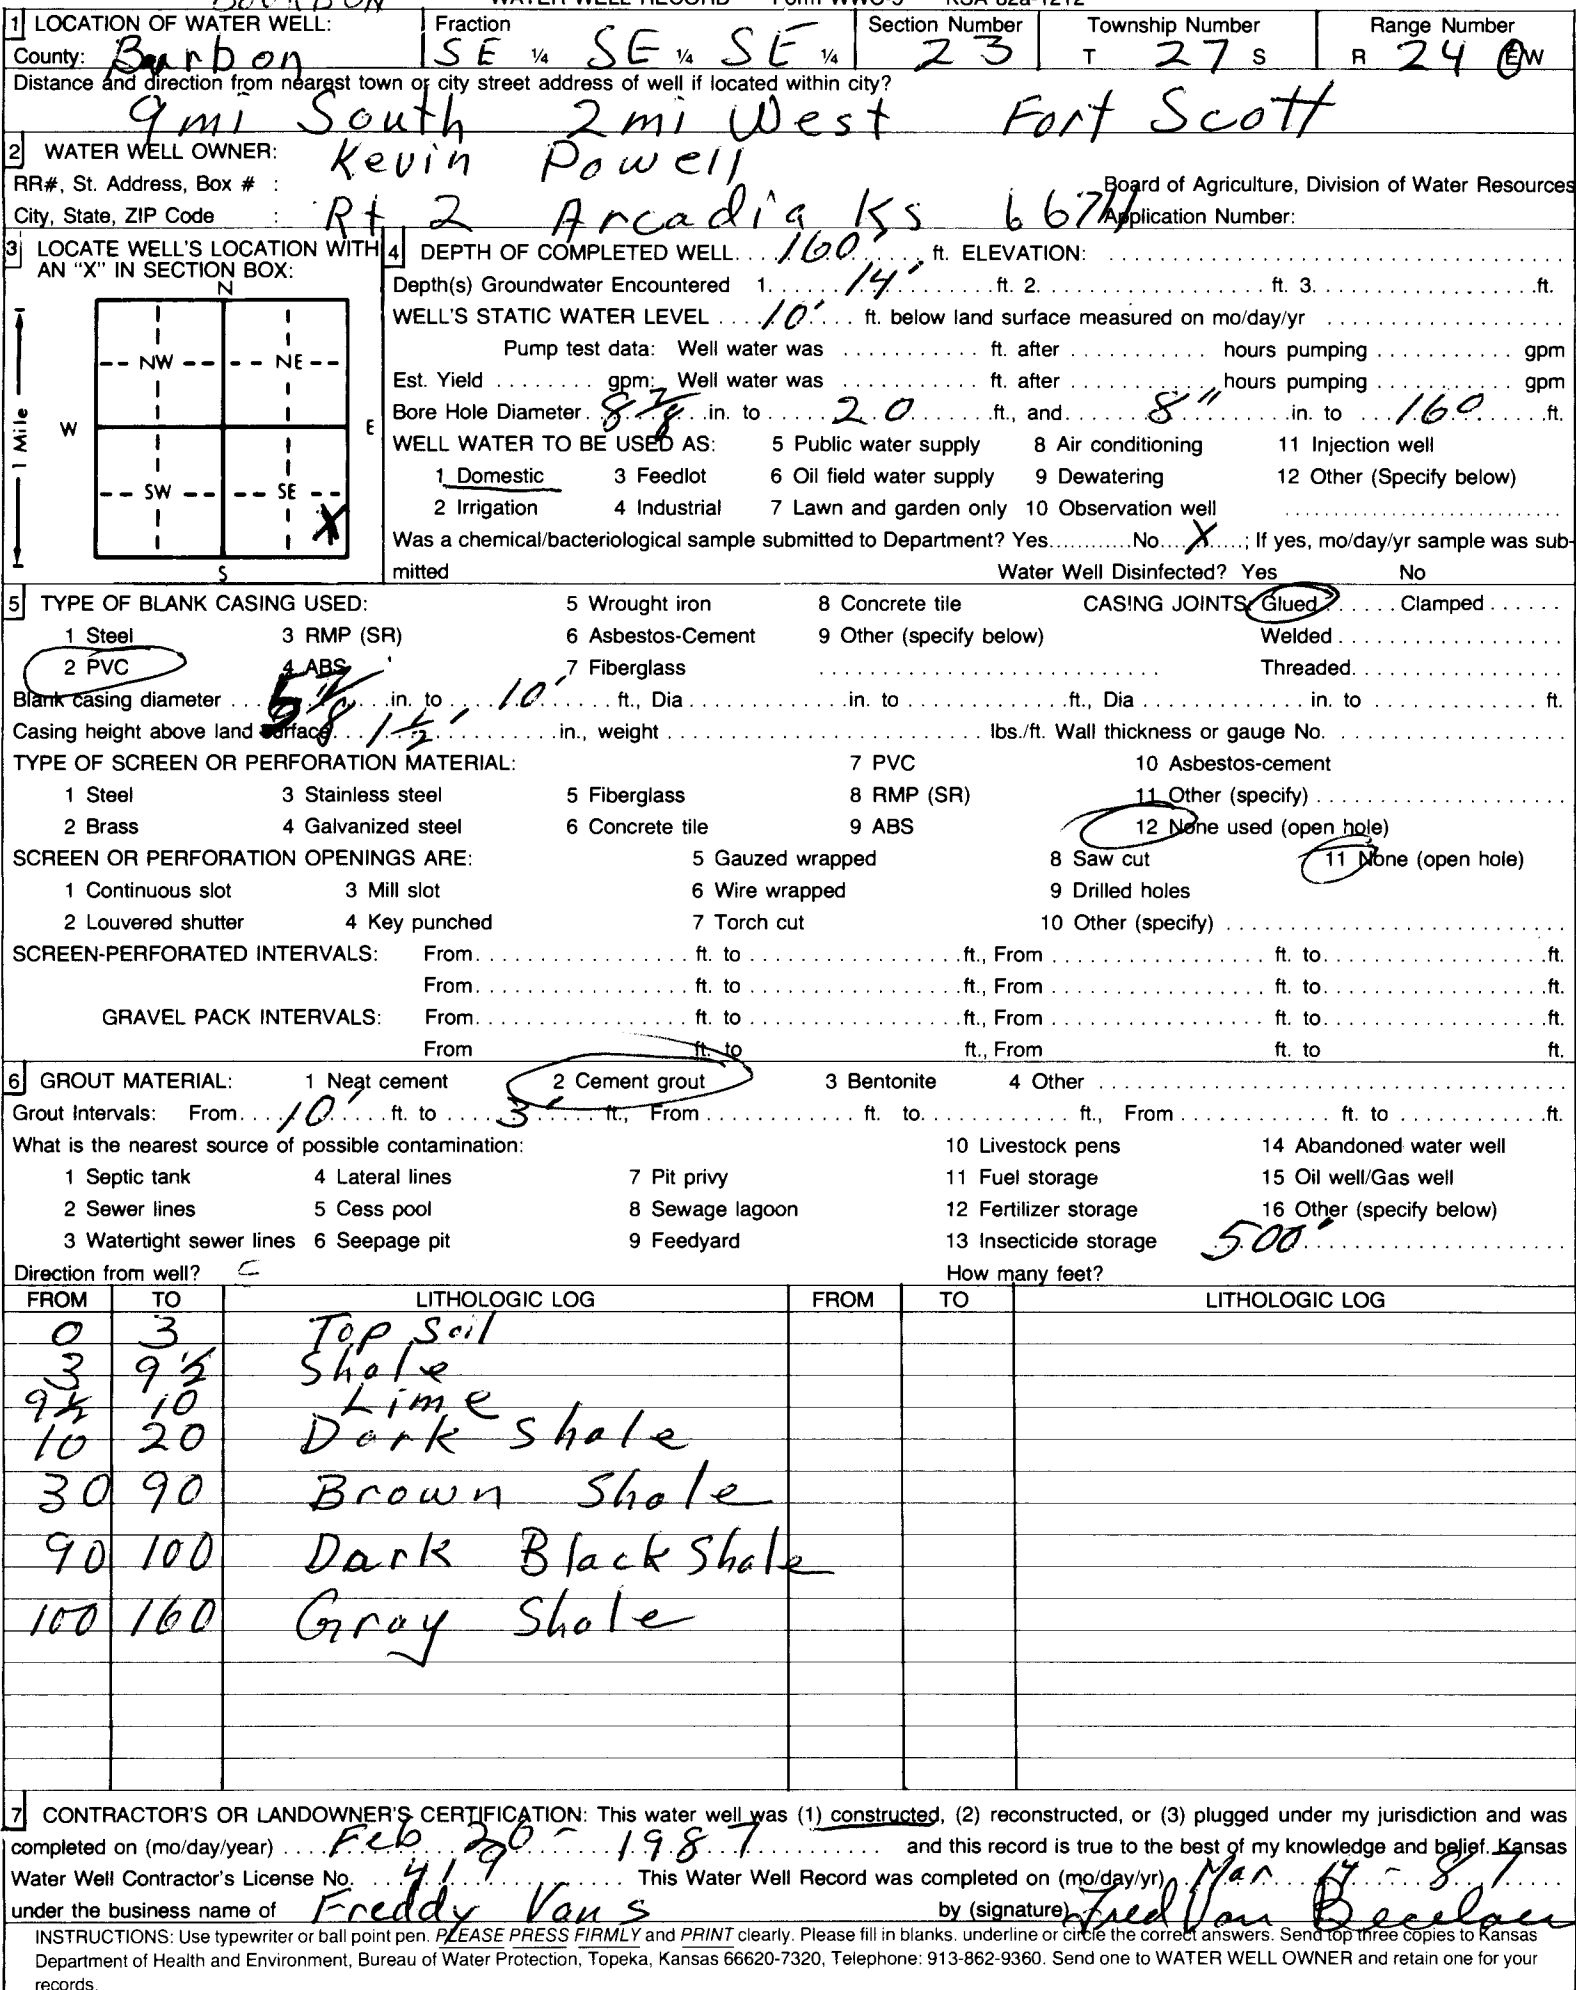 BOURBON WATER WELL RECORD Form WWC-5 KSA 82a-1212
1 LOCATION OF WATER WELL: Fraction Section Number Township Number Range Number
County: Barbon SE 1/4 SE 1/4 SE 1/4 23 T 27 S R 24 E/W
Distance and direction from nearest town or city street address of well if located within city?
9 mi South 2 mi West Fort Scott
2 WATER WELL OWNER: Kevin Powell
RR#, St. Address, Box # : Board of Agriculture, Division of Water Resources
City, State, ZIP Code : Rt 2 Arcadia Ks 66711 Application Number:
3 LOCATE WELL'S LOCATION WITH AN "X" IN SECTION BOX:
N
NW NE
W E
1 Mile
SW SE
X
S
4 DEPTH OF COMPLETED WELL 160' ft. ELEVATION:
Depth(s) Groundwater Encountered 1. 14' ft. 2. ft. 3. ft.
WELL'S STATIC WATER LEVEL 10' ft. below land surface measured on mo/day/yr
Pump test data: Well water was ft. after hours pumping gpm
Est. Yield gpm: Well water was ft. after hours pumping gpm
Bore Hole Diameter 8 7/8 in. to 20 ft., and 8" in. to 160 ft.
WELL WATER TO BE USED AS: 5 Public water supply 8 Air conditioning 11 Injection well
1 Domestic 3 Feedlot 6 Oil field water supply 9 Dewatering 12 Other (Specify below)
2 Irrigation 4 Industrial 7 Lawn and garden only 10 Observation well
Was a chemical/bacteriological sample submitted to Department? Yes No X ; If yes, mo/day/yr sample was sub-
mitted Water Well Disinfected? Yes No
5 TYPE OF BLANK CASING USED: 5 Wrought iron 8 Concrete tile CASING JOINTS: Glued Clamped
1 Steel 3 RMP (SR) 6 Asbestos-Cement 9 Other (specify below) Welded
2 PVC 4 ABS 7 Fiberglass Threaded
Blank casing diameter in. to 10' ft., Dia in. to ft., Dia in. to ft.
Casing height above land surface 1 1/2' in., weight lbs./ft. Wall thickness or gauge No.
TYPE OF SCREEN OR PERFORATION MATERIAL: 7 PVC 10 Asbestos-cement
1 Steel 3 Stainless steel 5 Fiberglass 8 RMP (SR) 11 Other (specify)
2 Brass 4 Galvanized steel 6 Concrete tile 9 ABS 12 None used (open hole)
SCREEN OR PERFORATION OPENINGS ARE: 5 Gauzed wrapped 8 Saw cut 11 None (open hole)
1 Continuous slot 3 Mill slot 6 Wire wrapped 9 Drilled holes
2 Louvered shutter 4 Key punched 7 Torch cut 10 Other (specify)
SCREEN-PERFORATED INTERVALS: From ft. to ft., From ft. to ft.
From ft. to ft., From ft. to ft.
GRAVEL PACK INTERVALS: From ft. to ft., From ft. to ft.
From ft. to ft., From ft. to ft.
6 GROUT MATERIAL: 1 Neat cement 2 Cement grout 3 Bentonite 4 Other
Grout Intervals: From 10' ft. to 3' ft., From ft. to ft., From ft. to ft.
What is the nearest source of possible contamination: 10 Livestock pens 14 Abandoned water well
1 Septic tank 4 Lateral lines 7 Pit privy 11 Fuel storage 15 Oil well/Gas well
2 Sewer lines 5 Cess pool 8 Sewage lagoon 12 Fertilizer storage 16 Other (specify below)
3 Watertight sewer lines 6 Seepage pit 9 Feedyard 13 Insecticide storage 500'
Direction from well? How many feet?
FROM TO LITHOLOGIC LOG FROM TO LITHOLOGIC LOG
0 3 Top Soil
3 9 1/2 Shale
9 1/2 10 Lime
10 20 Dark Shale
30 90 Brown Shale
90 100 Dark Black Shale
100 160 Gray Shale
7 CONTRACTOR'S OR LANDOWNER'S CERTIFICATION: This water well was (1) constructed, (2) reconstructed, or (3) plugged under my jurisdiction and was
completed on (mo/day/year) Feb 20 - 1987 and this record is true to the best of my knowledge and belief. Kansas
Water Well Contractor's License No. 419 This Water Well Record was completed on (mo/day/yr) Mar 14 - 87
under the business name of Freddy Vans by (signature) Fred Van Becelaer
INSTRUCTIONS: Use typewriter or ball point pen. PLEASE PRESS FIRMLY and PRINT clearly. Please fill in blanks, underline or circle the correct answers. Send top three copies to Kansas
Department of Health and Environment, Bureau of Water Protection, Topeka, Kansas 66620-7320, Telephone: 913-862-9360. Send one to WATER WELL OWNER and retain one for your
records.